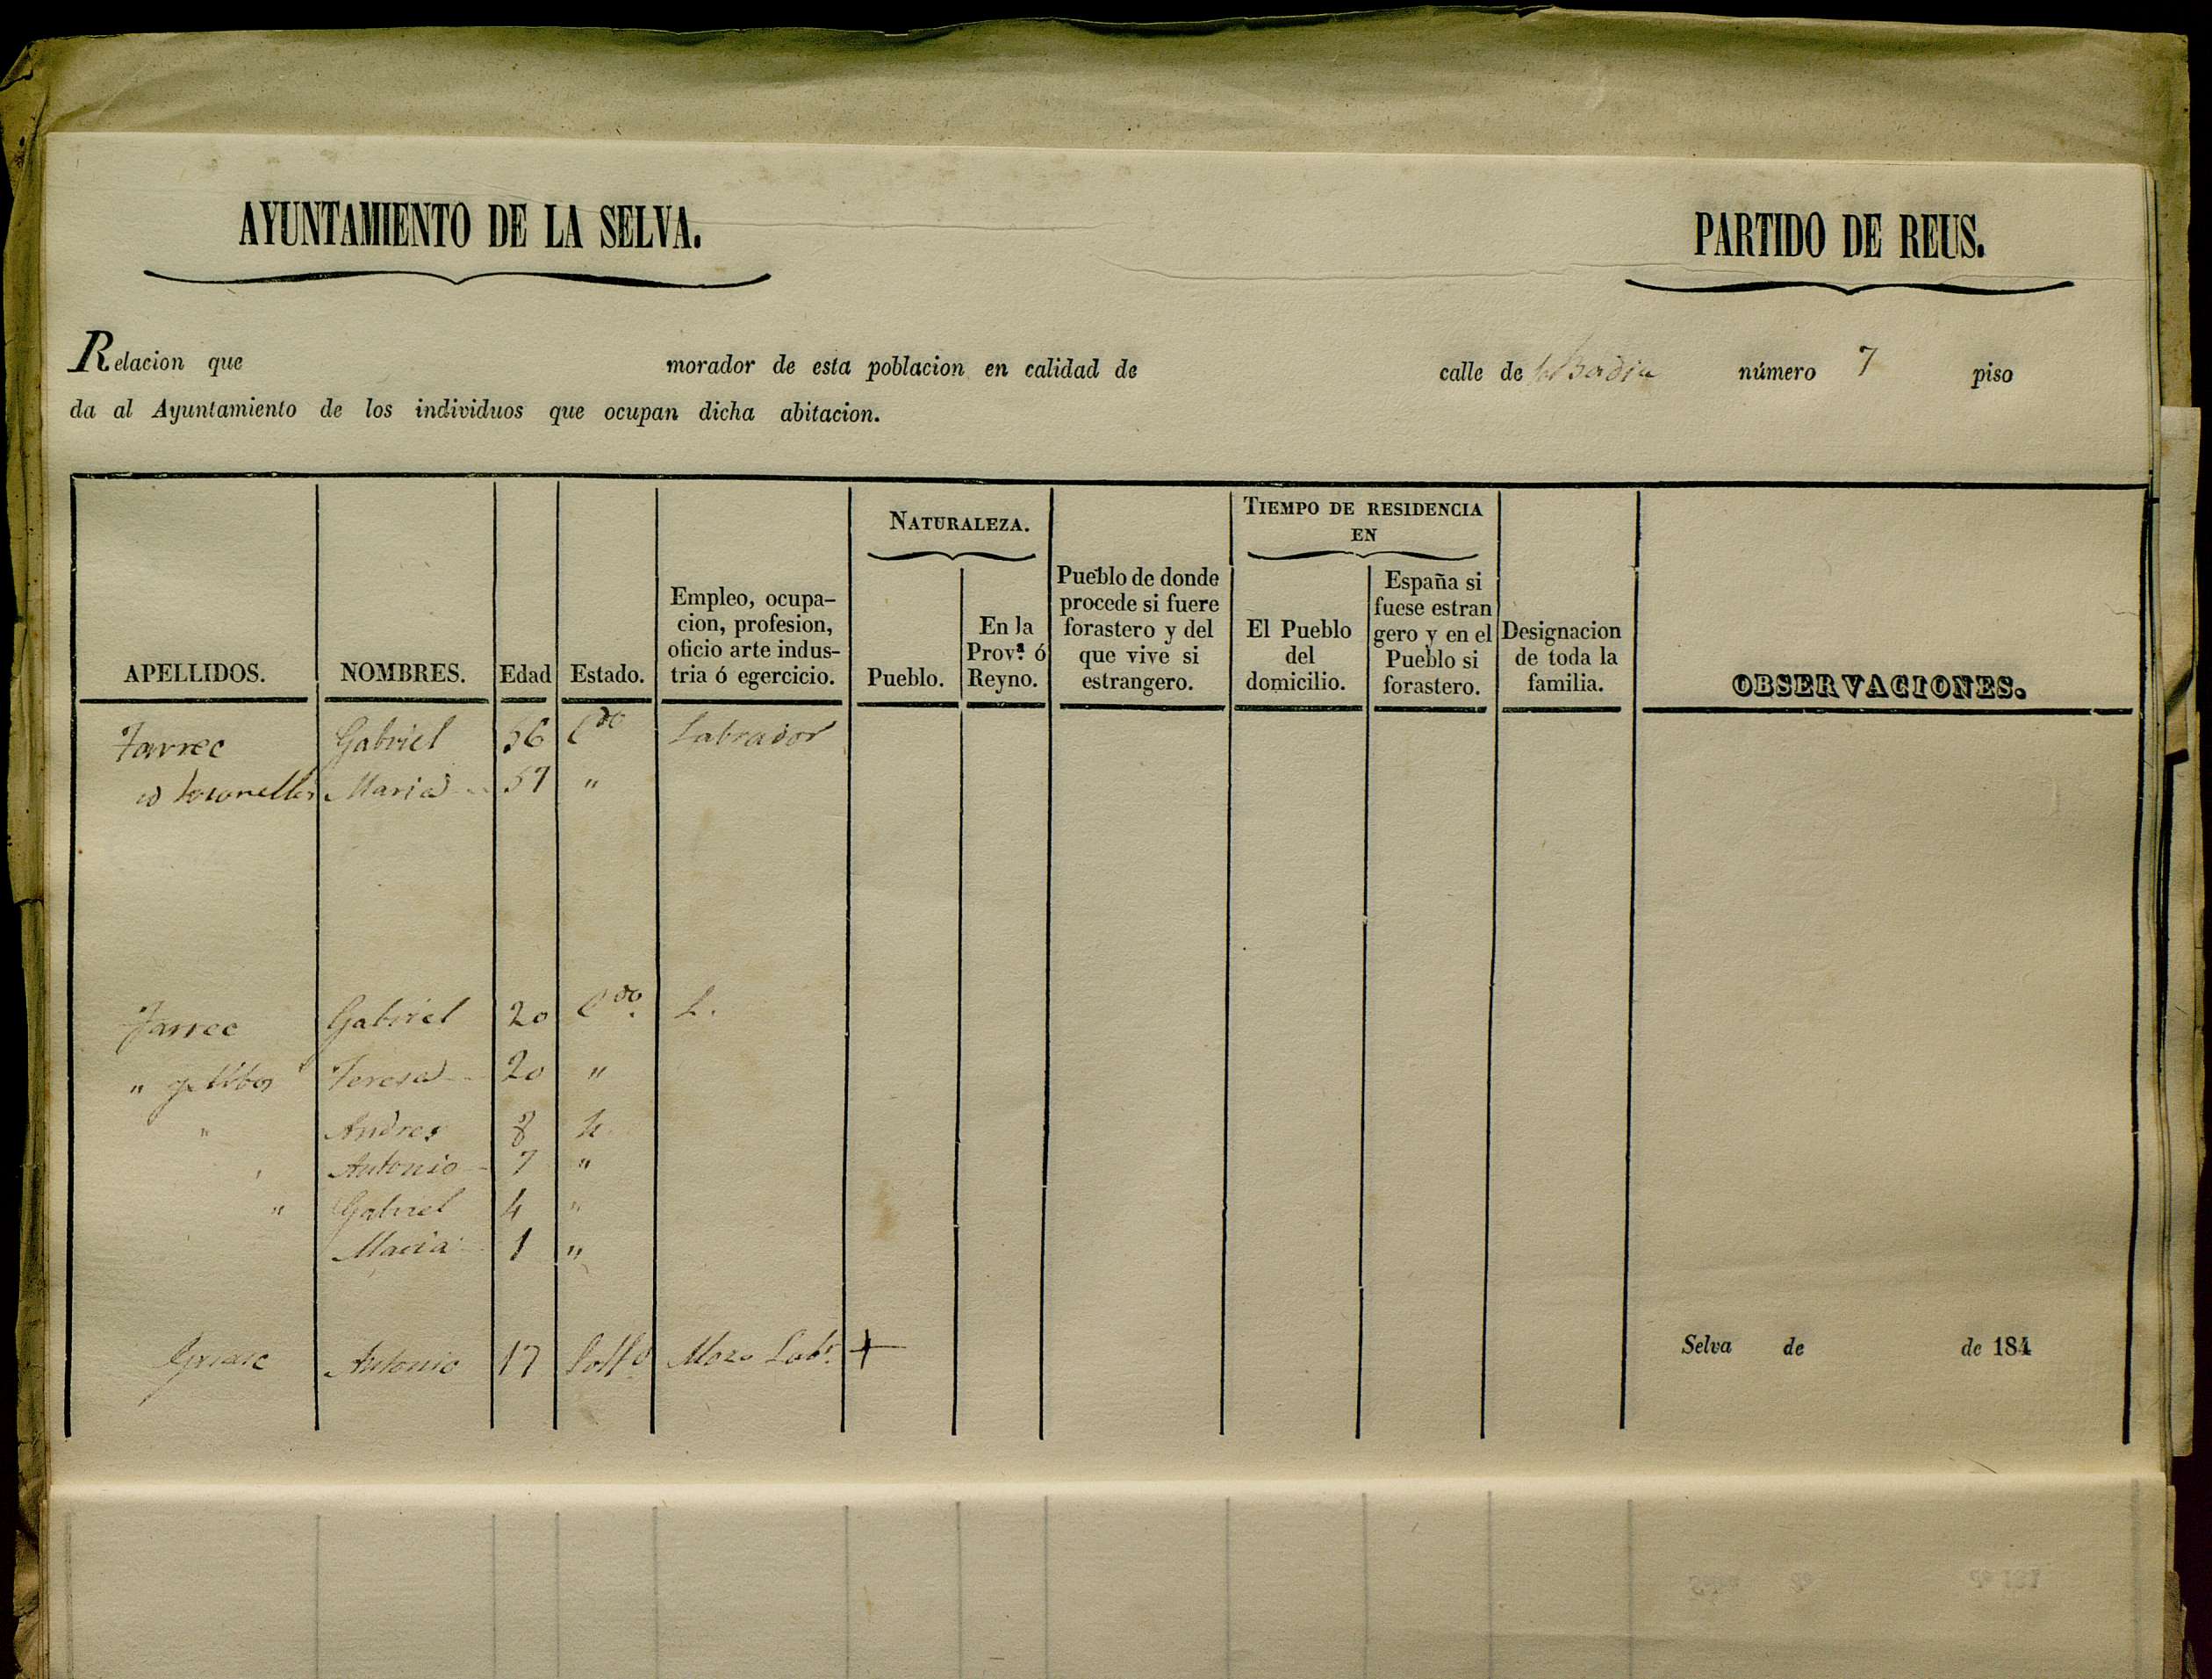 AYUNTAMIENTO DE LA SELVA.
PARTIDO DE REUS.
Relacion que morador de esta poblacion en calidad de calle de número 7 piso
da al Ayuntamiento de los individuos que ocupan dicha abitacion.
NATURALEZA.
TIEMPO DE RESIDENCIA
EN
APELLIDOS.
NOMBRES.
Edad
Estado.
Empleo, ocupa-
cion, profesion,
oficio arte indus-
tria ó egercicio.
Pueblo.
En la
Prov.ª ó
Reyno.
Pueblo de donde
procede si fuere
forastero y del
que vive si
estrangero.
El Pueblo
del
domicilio.
España si
fuese estran
gero y en el
Pueblo si
forastero.
Designacion
de toda la
familia.
OBSERVACIONES.
Gabriel 56 C.do Labrador
Maria 57 "
Gabriel 20 C.do L.
" Teresa 20 "
" Andres 8
Antonio 7 "
" Gabriel 4 "
Maria 1 "
Antonio 17 Solt.o Mozo Lab.r +
Selva de de 184